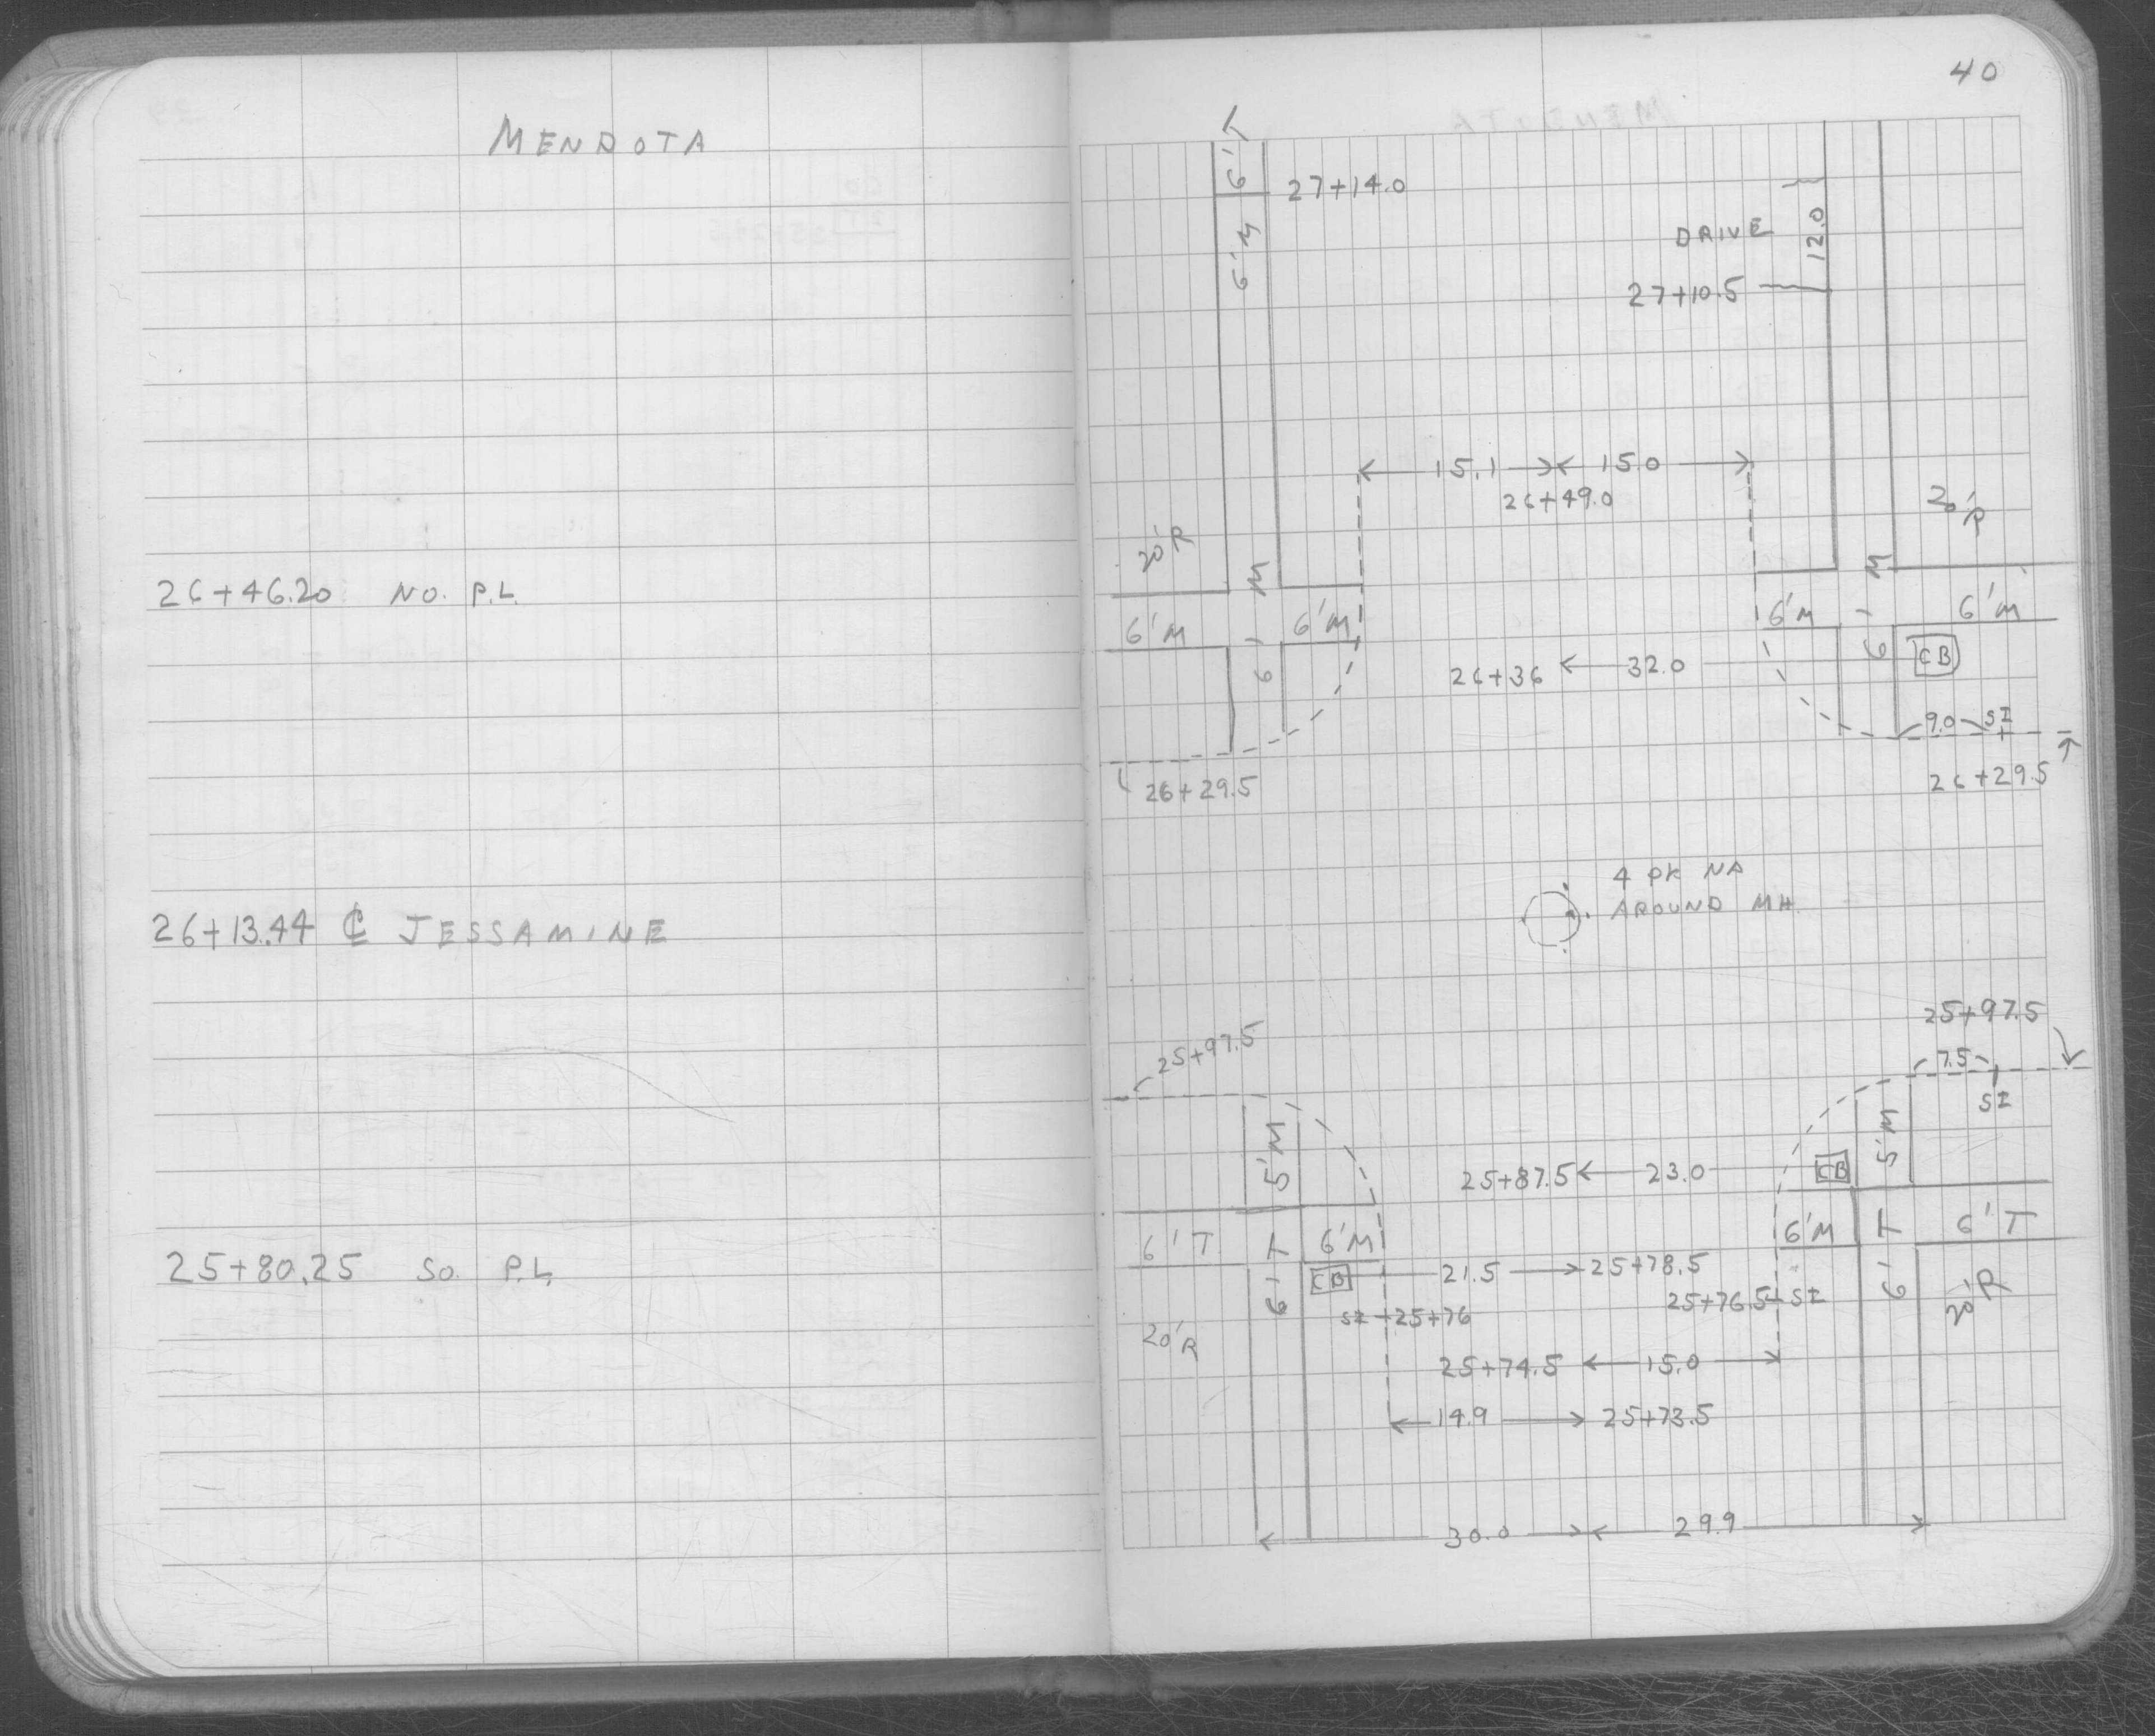 MENDOTA
26+46.20 NO. P.L.
26+13.44 ℄ JESSAMINE
25+80.25 SO. P.L.
40
6'T
27+14.0
6'M
DRIVE
12.0
27+10.5
15.1 15.0
26+49.0
20'R
20'R
6'M
6'M
6'M
6'M
6'M
6'M
CB
26+36 32.0
9.0 SI
26+29.5
26+29.5
4 PK NA
AROUND MH.
25+97.5
25+97.5
7.5
SI
5'M
5'M
25+87.5 23.0
CB
6'T
6'T
6'M
6'M
6'T
6'T
CB
21.5 25+78.5
SI 25+76
25+76.5 SI
20'R
20'R
25+74.5 15.0
14.9 25+73.5
30.0 29.9